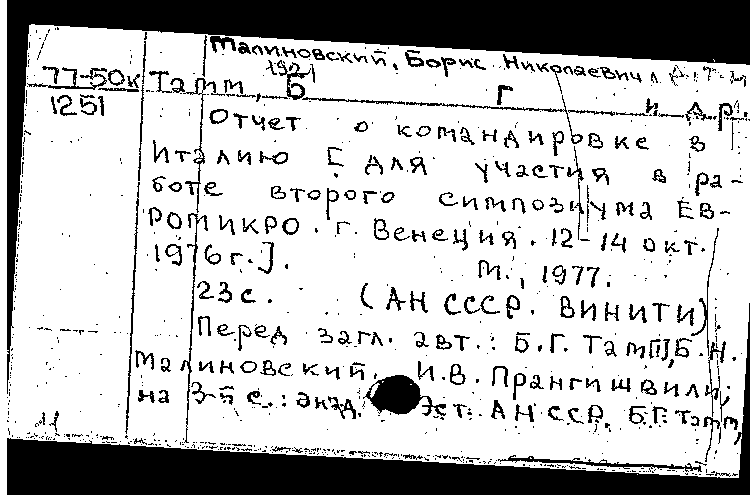 Малиновский, Борис Николаевич
1921
77-50к Тамм, Б Г и др.
1251
Отчет о командировке в
Италию [для участия в ра-
боте второго симпозиума ЕВ-
РОМИКРО. г. Венеция. 12-14 окт.
1976 г.]. М., 1977.
23 с. (АН СССР. ВИНИТИ).
Перед загл. авт.: Б.Г. Тамм, Б.Н.
Малиновский, И.В. Прангишвили;
на 3-й с.: акад. Эст. АН ССР, Б.Г. Тамм,